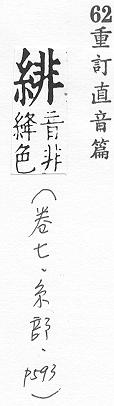 62重訂直音篇
緋
音非
絳色
(卷七·糸部·p593)